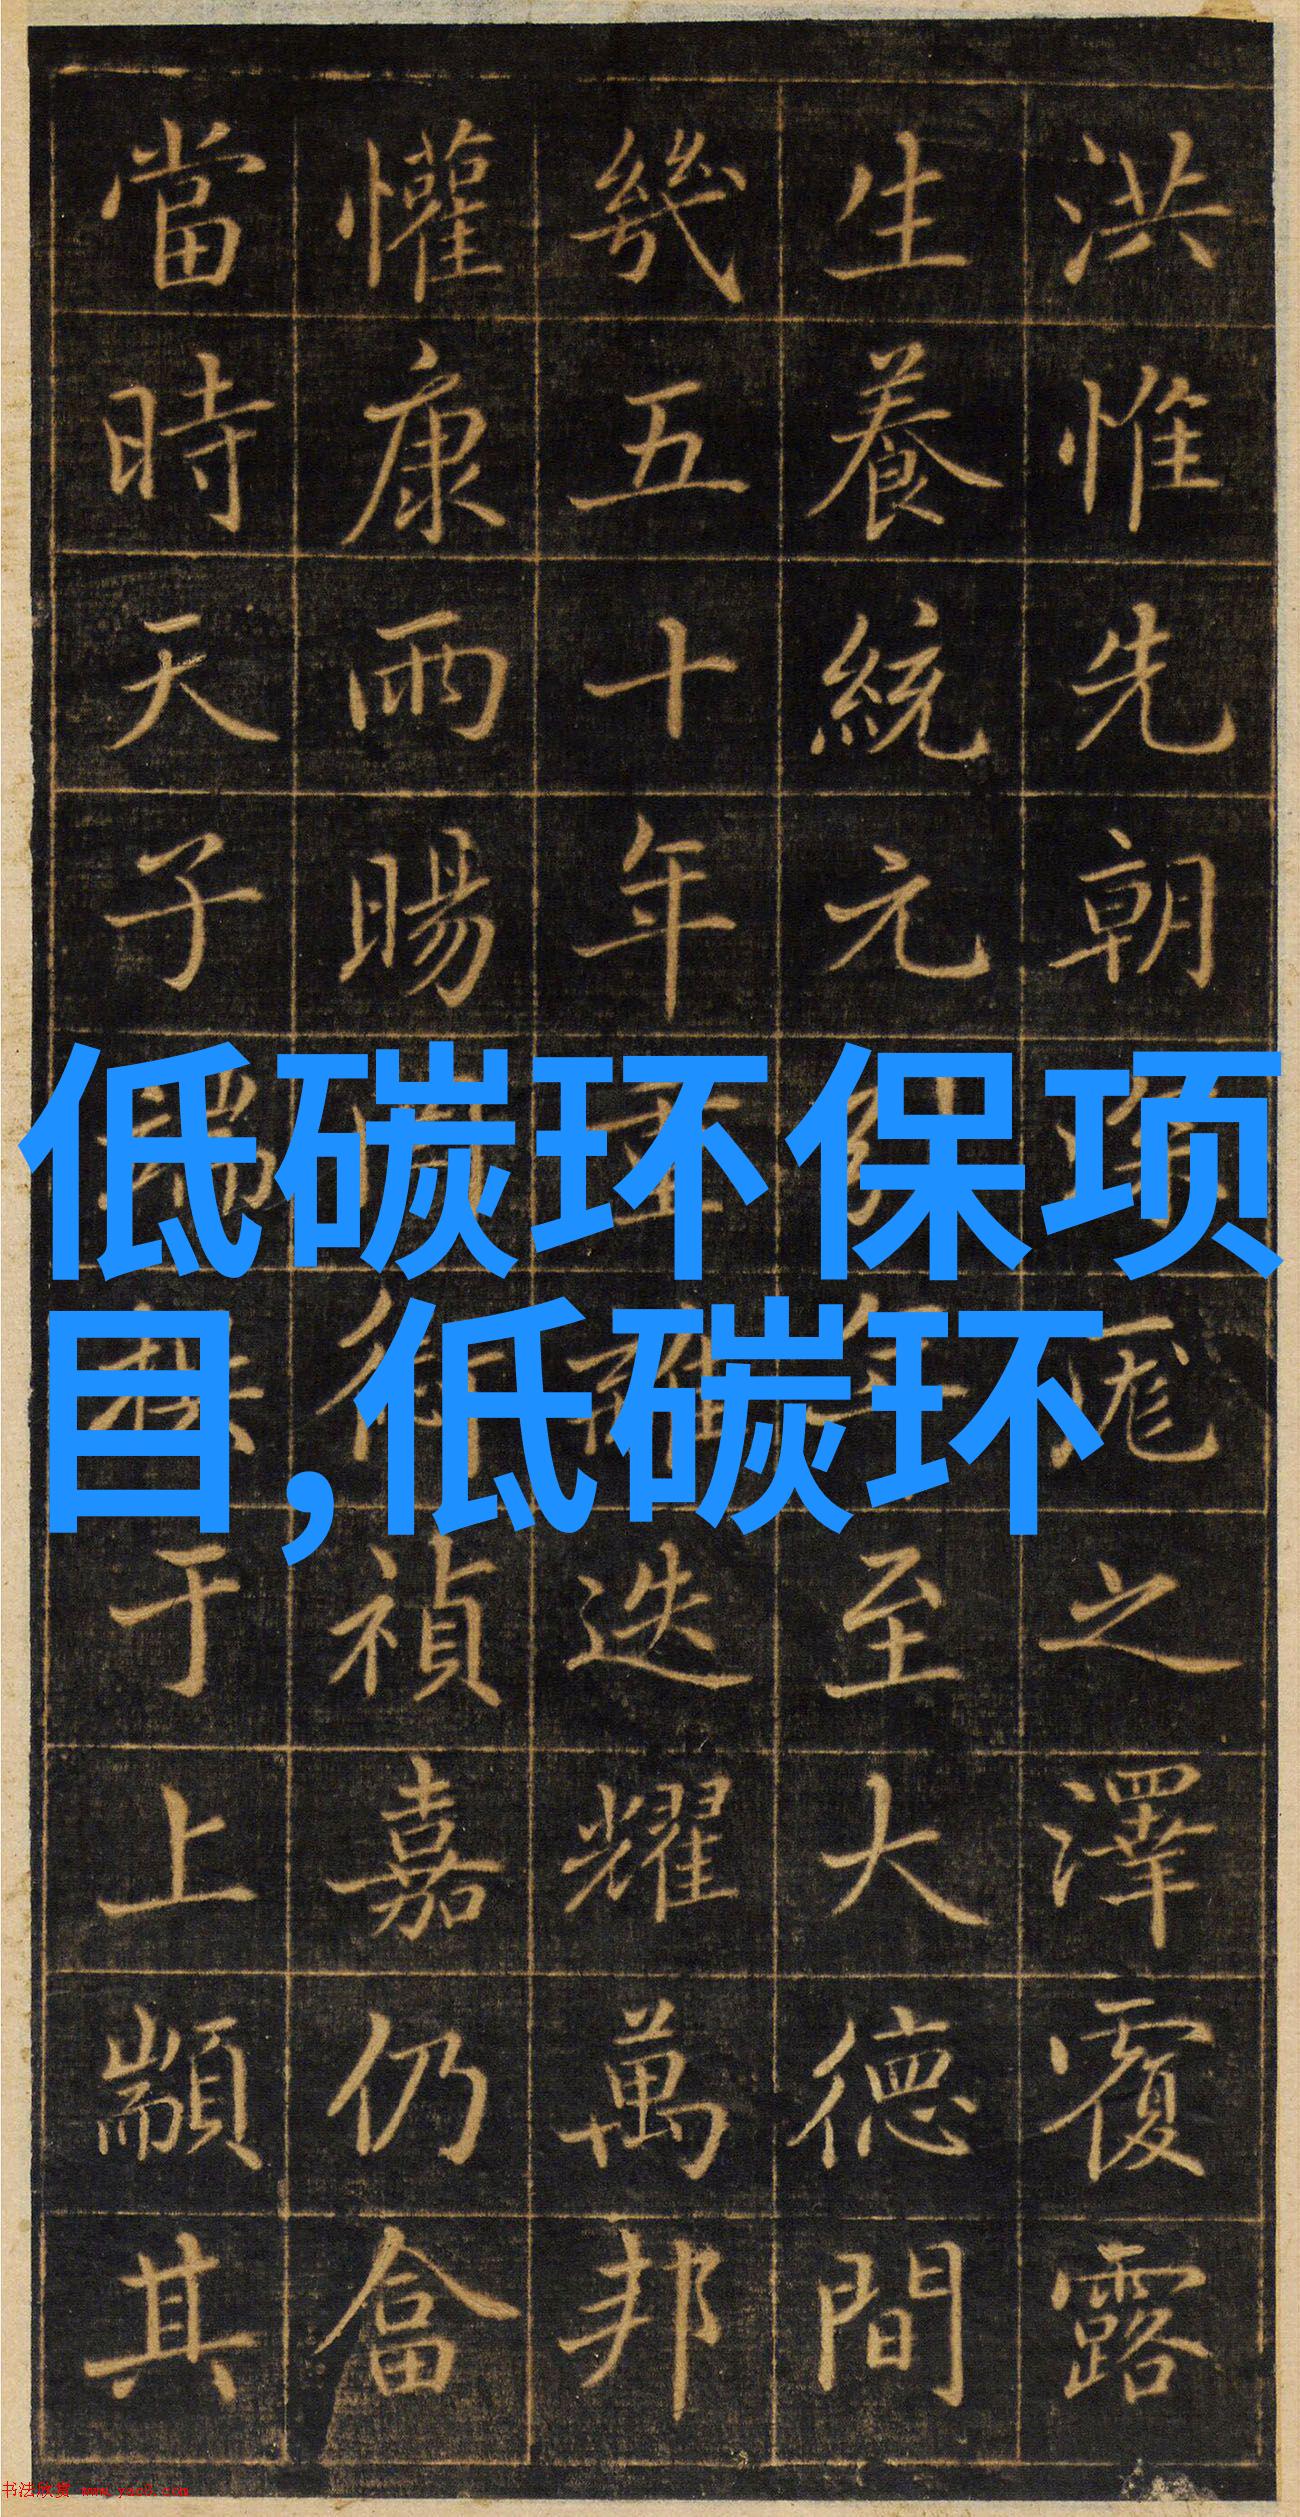 洪惟先朝深厖之澤覆露
生養統元至大德間
幾五十年重離迭耀萬邦
懽康雨暘禎嘉仍畲
當時天子端拱于上顒其
低碳环保项
目,低碳环
书法欣赏 www.yac8.com